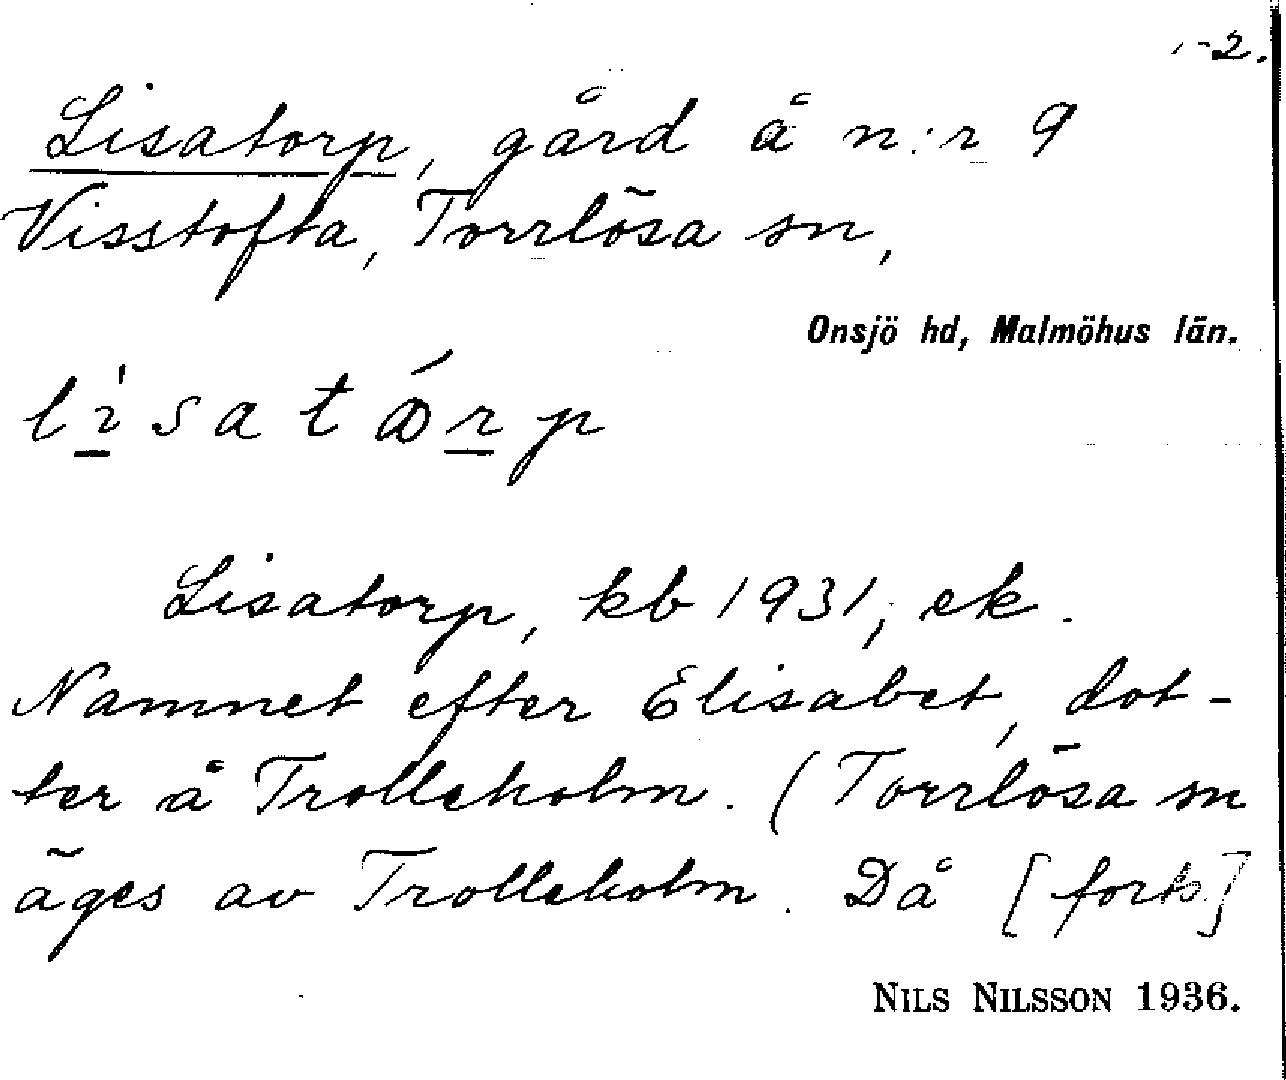 1-2.
Lisatorp, gård å n:r 9
Visstofta, Torrlösa sn,
Onsjö hd, Malmöhus län.
Lisatorp, kb 1931, ek.
Namnet efter Elisabet, dot-
ter å Trolleholm. (Torrlösa sn
äges av Trolleholm. Då [forts]
NILS NILSSON 1936.